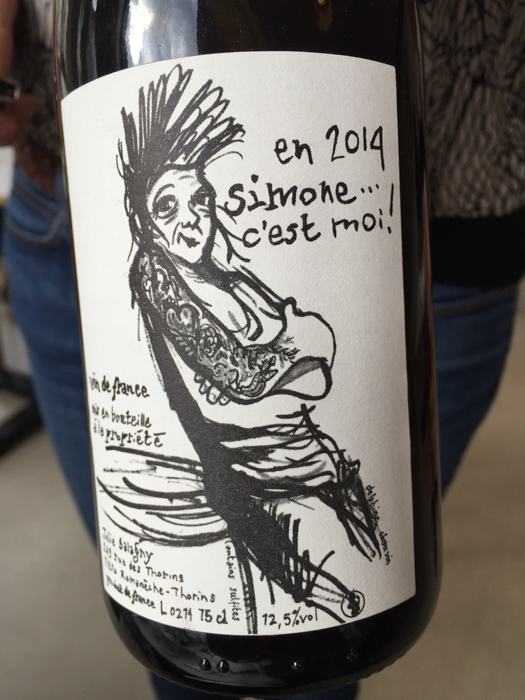 en 2014
simone...
c'est moi!
vin de france
mis en bouteille
à la propriété
Julie Balagny
rue des Thorins
Romanèche-Thorins
produit de france L 0214 75 cl
contains sulfites
12,5%vol